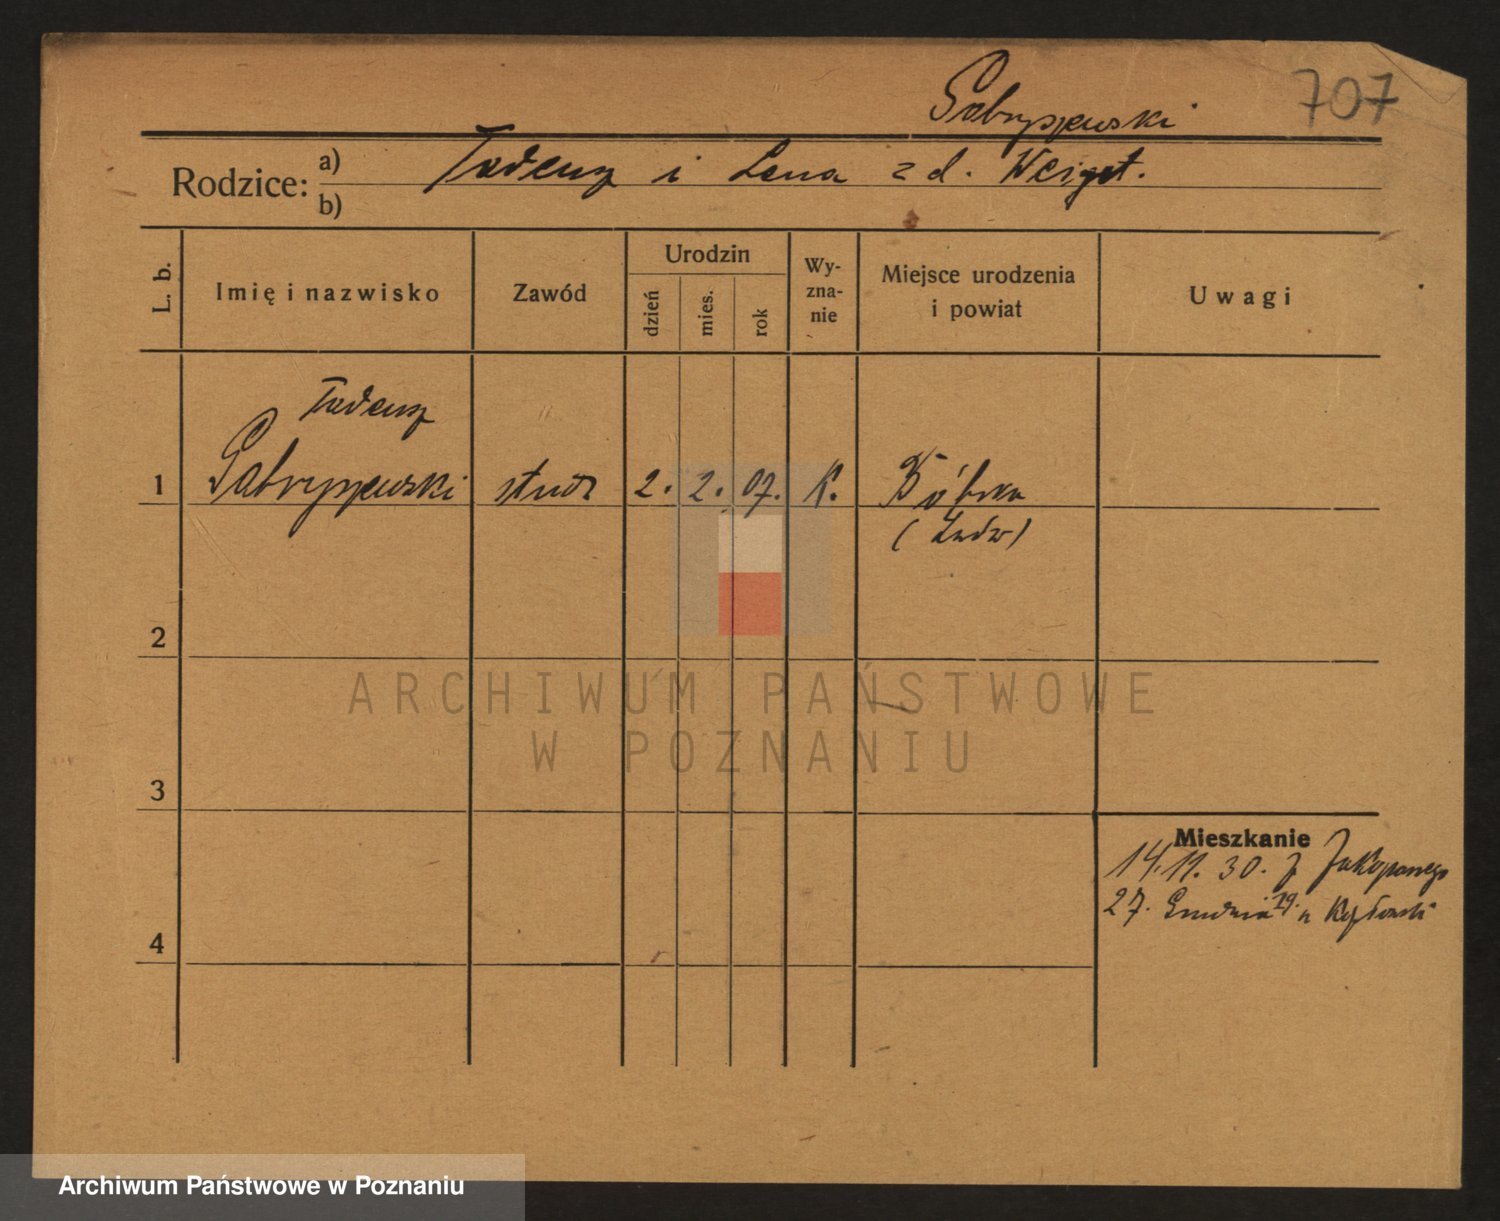 Gabryszewski 707
Rodzice: a) Tadeusz i Lena z d. Weigt.
b)
L. b. Imię i nazwisko Zawód Urodzin dzień mies. rok Wy-zna-nie Miejsce urodzenia i powiat Uwagi
Tadeusz
1 Gabryszewski stud 2. 2. 07. K. Bóbrka
2
3
4
Mieszkanie
14.11.30. z Zakopanego
27. Grudnia 29.
ARCHIWUM PAŃSTWOWE
W POZNANIU
Archiwum Państwowe w Poznaniu